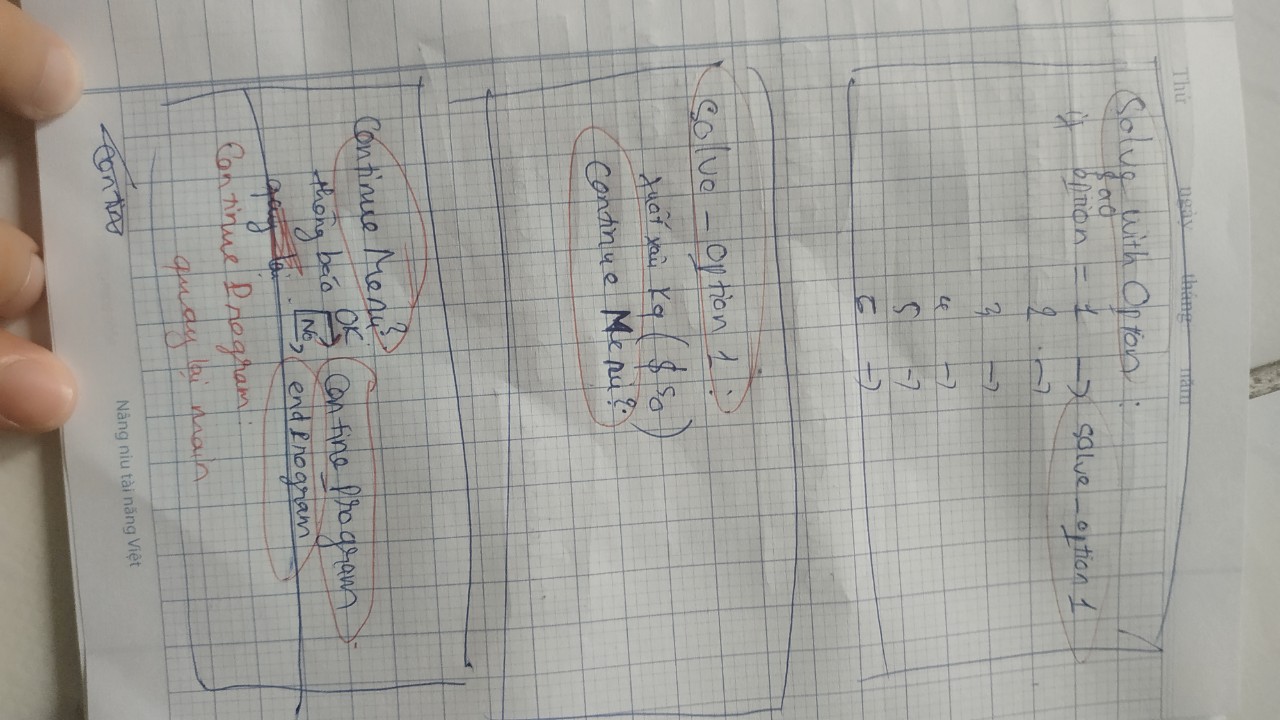 Thứ ngày tháng năm
Solve with Option :
$a0
if option = 1 → solve_option 1
2 →
3 →
4 →
5 →
6 →
Solve_option 1 :
xuất xâu Kq ($s0)
Continue Menu?
Continue Menu?
OK
thông báo → Contine Program
No, end Program
quay lại
Continue Program:
quay lại main
Contin
Nâng niu tài năng Việt